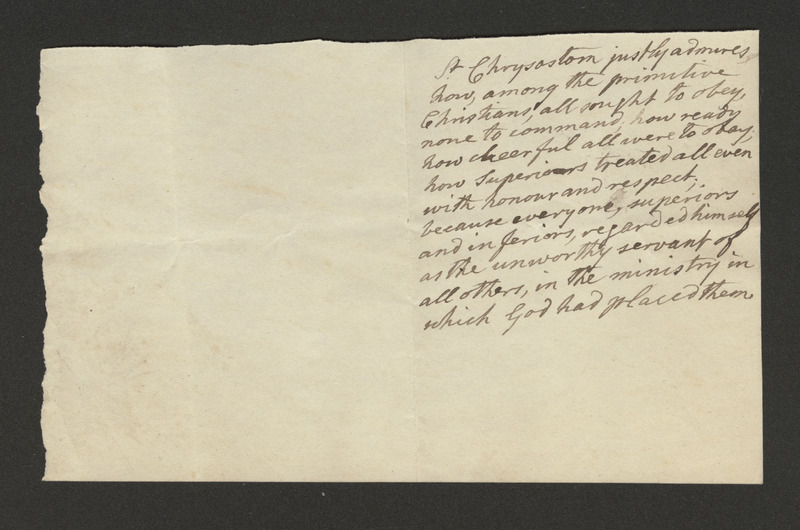 St Chrysostom justly admires,
how, among the primitive
Christians, all sought to obey,
none to command, how ready
how cheerful all were to obey,
how Superiors treated all even
with honour and respect;
because everyone, superiors
and inferiors, regarded himself
as the unworthy servant of
all others, in the ministry in
which God had placed them.